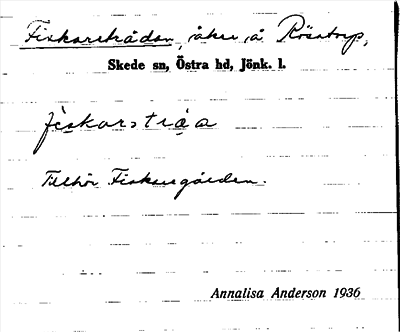 Fiskareträdan, åker, å Rösatorp,
Skede sn, Östra hd, Jönk. l.
Tillhör Fiskaregården.
Annalisa Anderson 1936